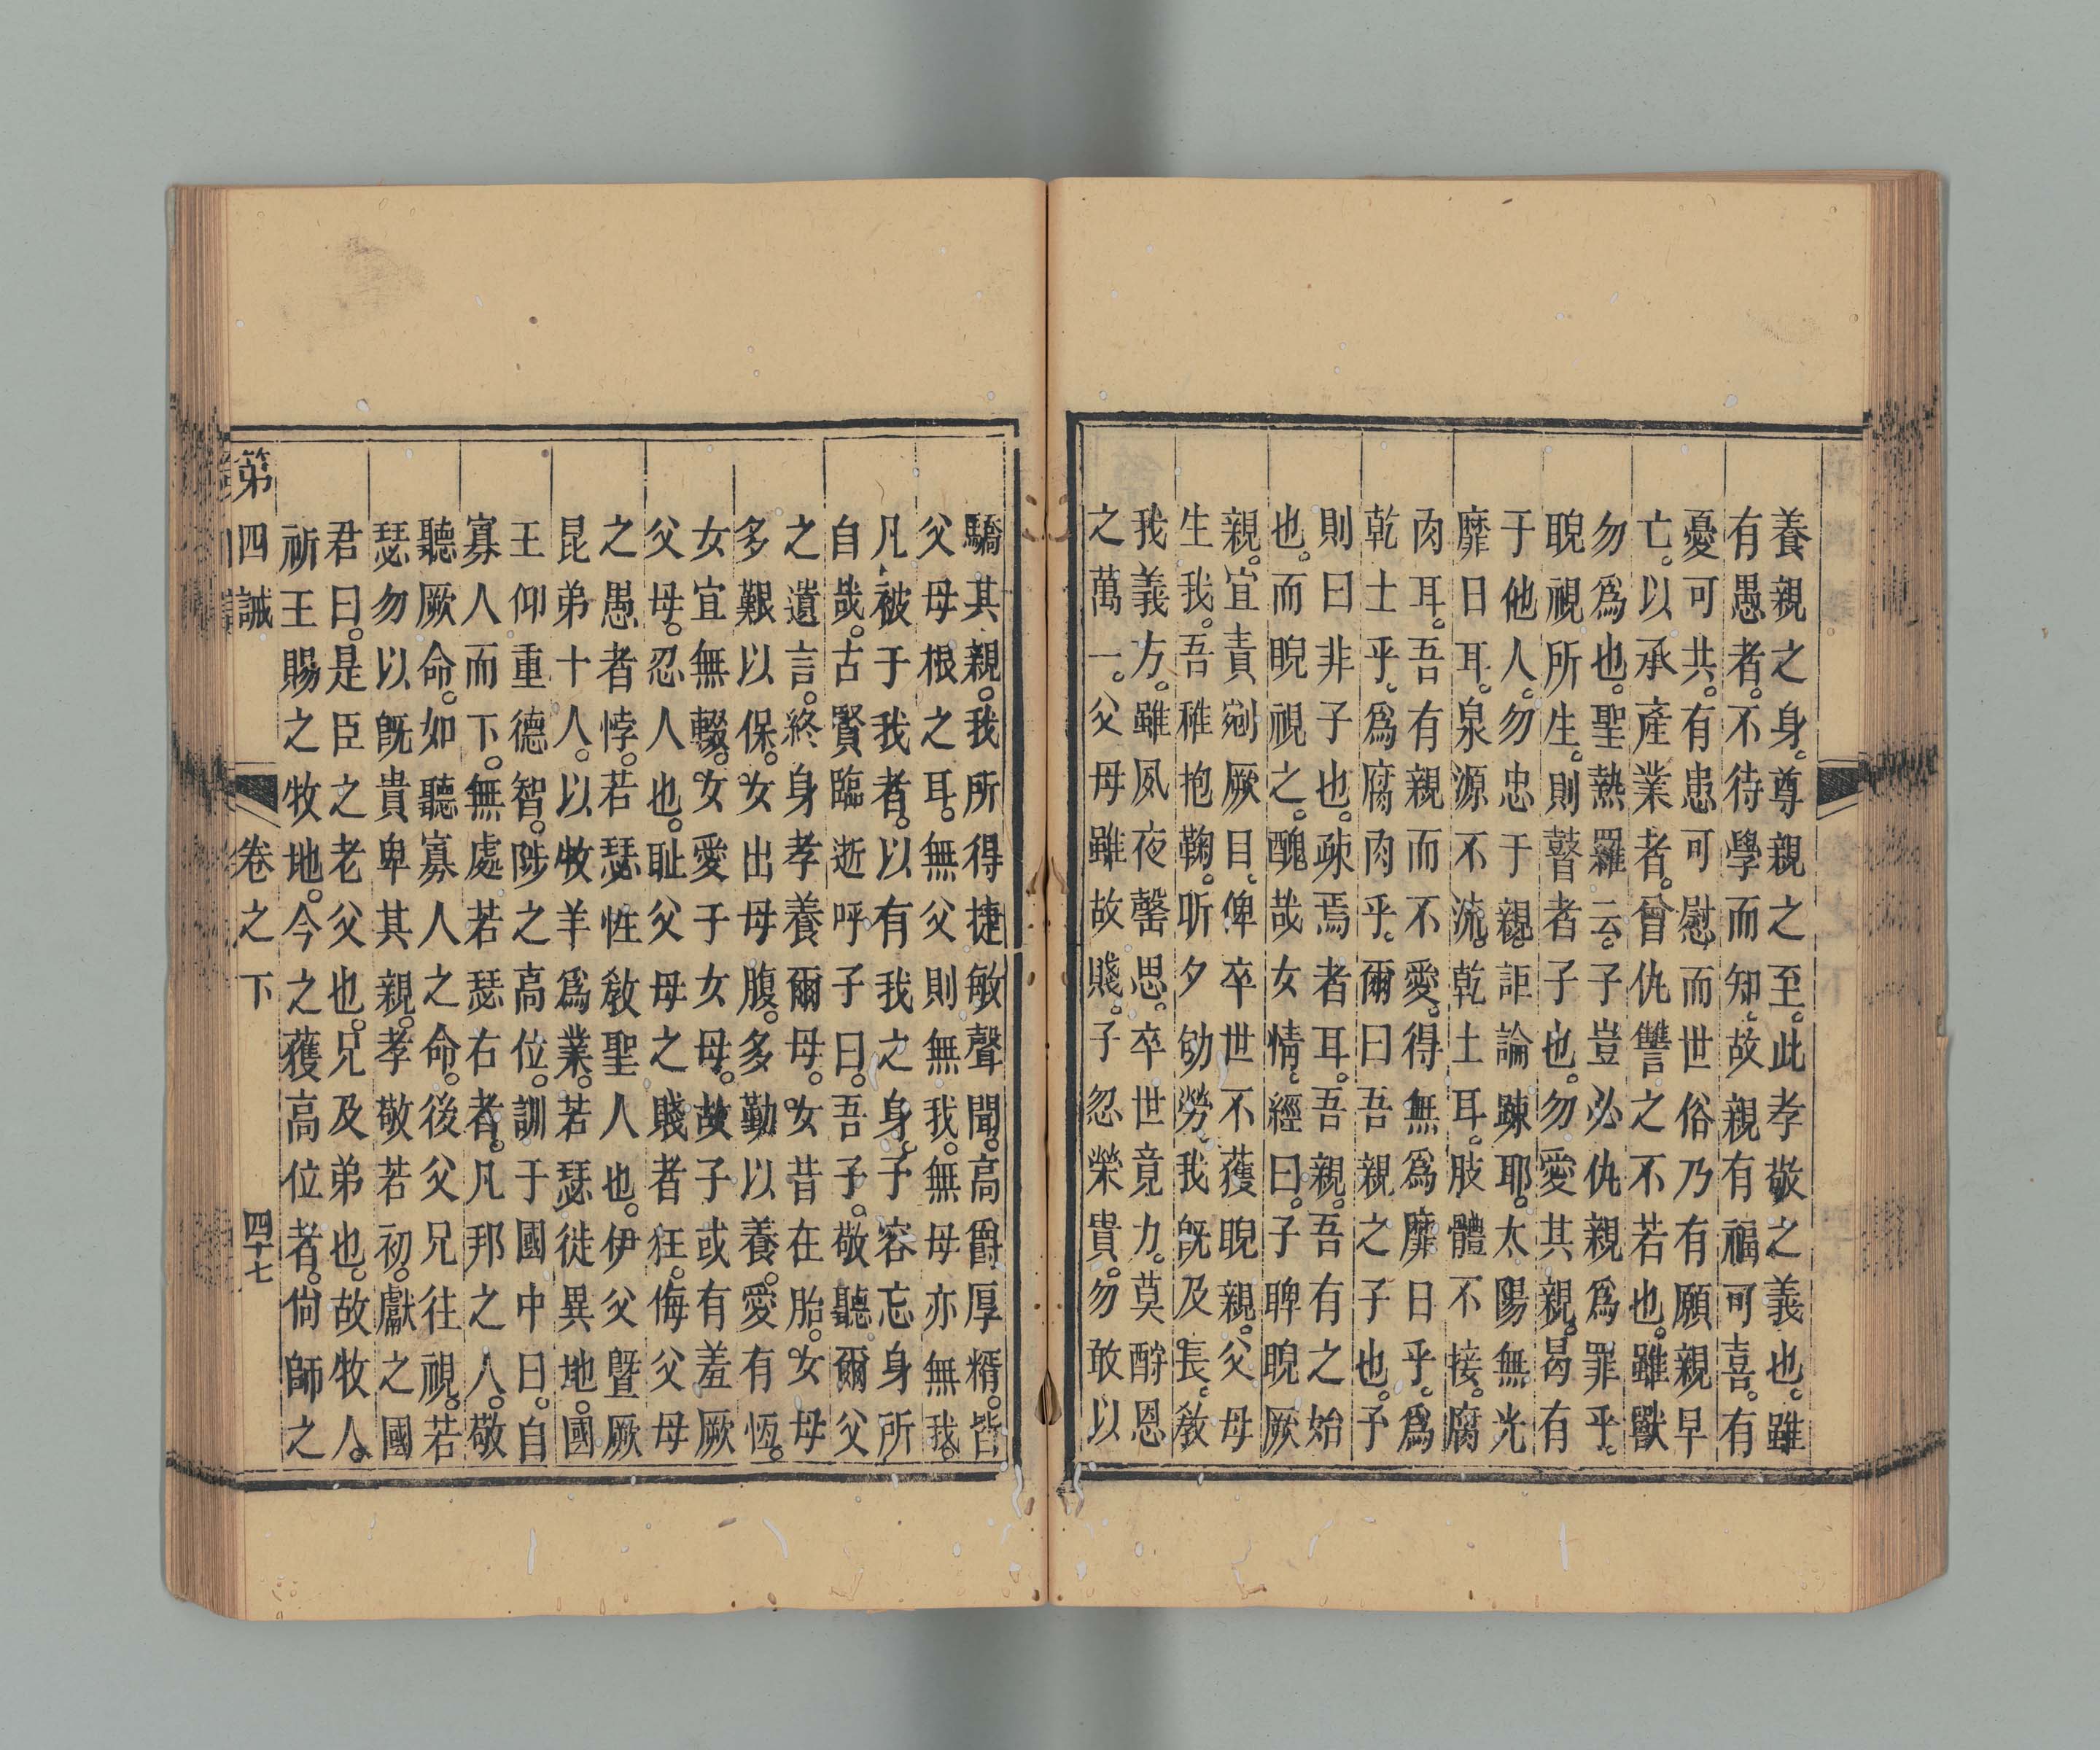 養親之身。尊親之至。此孝敬之義也。雖
有愚者。不待學而知。故親有福可喜。有
憂可共。有患可慰。而世俗乃有願親早
亡。以承產業者。曾仇讐之不若也。雖獸
勿爲也。聖熱羅云。子豈必仇親爲罪乎。
睨視所生。則瞽者子也。勿愛其親。曷有
于他人。勿忠于親。詎論踈耶。太陽無光
靡日耳。泉源不流。乾土耳。肢體不接。腐
肉耳。吾有親而不愛。得無爲靡日乎。爲
乾土乎。爲腐肉乎。爾曰吾親之子也。予
則曰非子也。疎焉者耳。吾親。吾有之始
也。而睨視之。醜哉女情。經曰。子睥睨厥
親。宜責剜厥目。俾卒世不獲睨親。父母
生我。吾稚抱鞠。昕夕劬勞。我旣及長。敎
我義方。雖夙夜罄思。卒世竟力。莫酹恩
之萬一。父母雖故賤。子忍榮貴。勿敢以
驕其親。我所得捷敏聲聞。高爵厚糈。皆
父母根之耳。無父則無我。無母亦無我。
凡被于我者。以有我之身。予容忘身所
自哉。古賢臨逝呼子曰。吾子。敬聽爾父
之遺言。終身孝養爾母。女昔在胎。女母
多艱以保。女出母腹。多勤以養。愛有恆。
女宜無輟。女愛于女母。故子或有羞厥
父母。忍人也。耻父母之賤者狂。侮父母
之愚者悖。若瑟性敎聖人也。伊父曁厥
昆弟十人。以牧羊爲業。若瑟徙異地。國
王仰重德智。陟之高位。訓于國中曰。自
寡人而下。無處若瑟右者。凡邦之人。敬
聽厥命。如聽寡人之命。後父兄往視。若
瑟勿以旣貴卑其親。孝敬若初。獻之國
君曰。是臣之老父也。兄及弟也。故牧人。
祈王賜之牧地。今之獲高位者。尙師之
第四誡　卷之下　四十七